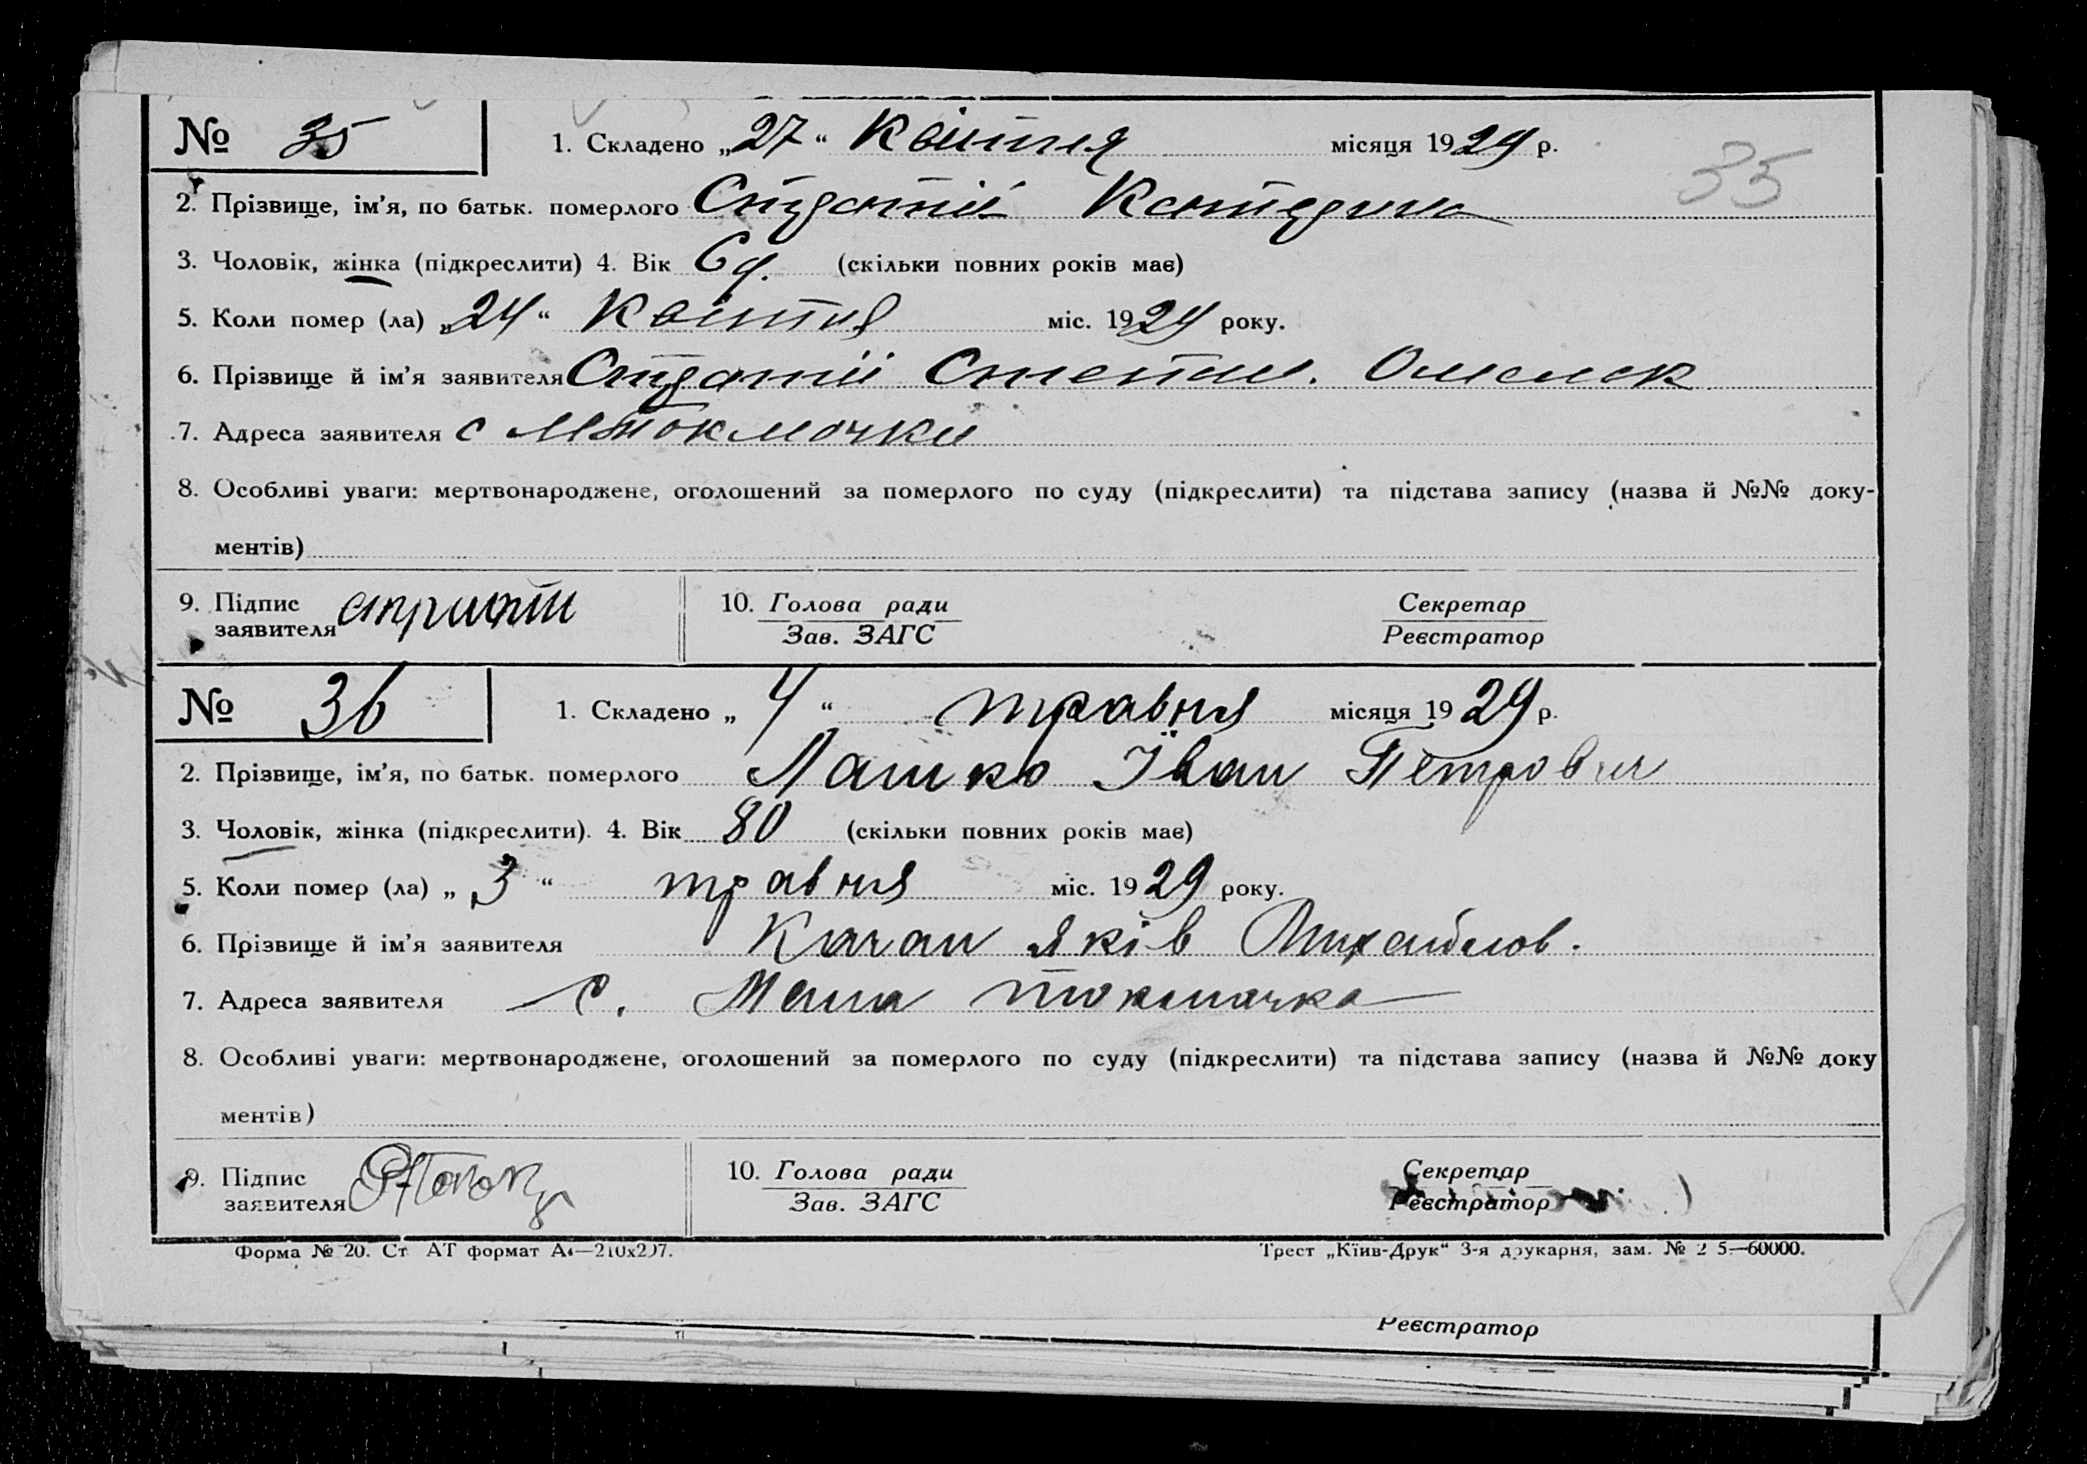 № 35 1. Складено „27“ Квітня місяця 1929 р.
35
2. Прізвище, ім'я, по батьк. померлого Катерина
3. Чоловік, жінка (підкреслити) 4. Вік (скільки повних років має)
5. Коли помер (ла) „24“ Квітня міс. 1929 року.
6. Прізвище й ім'я заявителя Степан. Омеляк
7. Адреса заявителя с Мтокмачки
8. Особливі уваги: мертвонароджене, оголошений за померлого по суду (підкреслити) та підстава запису (назва й №№ доку-
ментів)
9. Підпис заявителя 10. Голова ради Секретар
Зав. ЗАГС Реєстратор
№ 36 1. Складено „4“ травня місяця 1929 р.
2. Прізвище, ім'я, по батьк. померлого Лашко Іван Петрович
3. Чоловік, жінка (підкреслити). 4. Вік 80 (скільки повних років має)
5. Коли помер (ла) „3“ травня міс. 1929 року.
6. Прізвище й ім'я заявителя Качан Яків Михайлов.
7. Адреса заявителя с. Мала токмачка
8. Особливі уваги: мертвонароджене, оголошений за померлого по суду (підкреслити) та підстава запису (назва й №№ доку
ментів)
9. Підпис заявителя 10. Голова ради Секретар
Зав. ЗАГС Реєстратор
Форма № 20. Ст АТ формат Трест „Київ-Друк“ 3-я друкарня, зам. № 5—60000.
Реєстратор